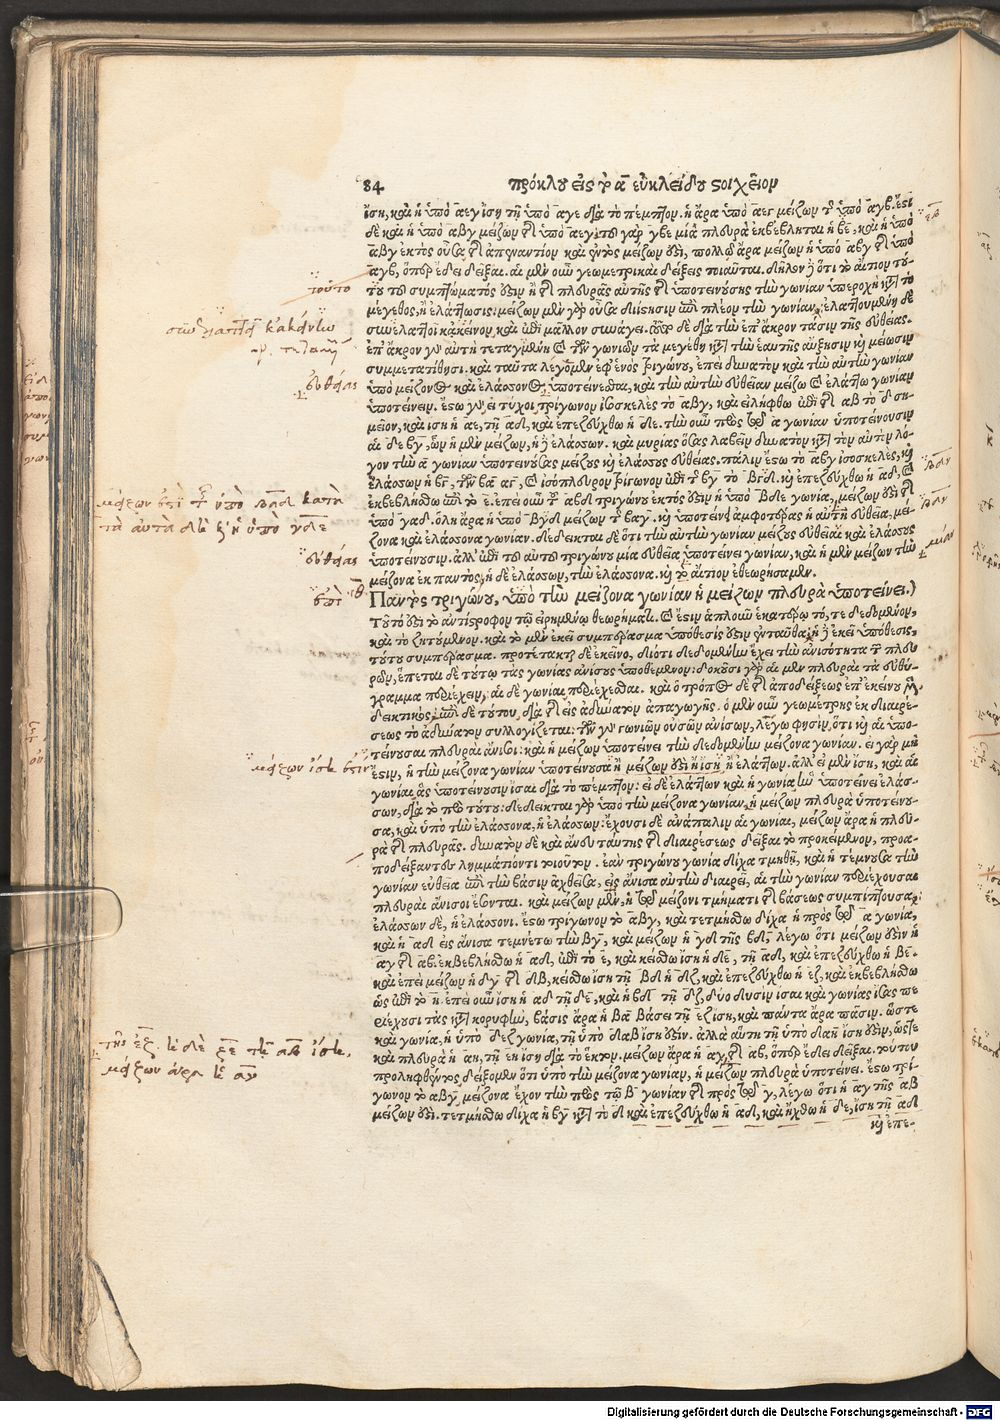 84 πρόκλου εἰς τὸ α εὐκλείδου στοιχεῖον
ἴση, καὶ ἡ ὑπὸ αεγ ἴση τῇ ὑπὸ αγε διὰ τὸ πέμπτον. ἡ ἄρα ὑπὸ αεγ μείζων τῆς ὑπὸ αγβ. ἔστι
δὲ καὶ ἡ ὑπὸ αβγ μείζων τῆς ὑπὸ αεγ· τοῦ γὰρ γβε μία πλευρὰ ἐκβέβληται ἡ βε, καὶ ἡ ὑπὸ
αβγ ἐκτὸς οὖσα τῆς ἀπεναντίον καὶ ἐντὸς μείζων ἐστί, πολλῷ ἄρα μείζων ἡ ὑπὸ αβγ τῆς ὑπὸ
αγβ, ὅπερ ἔδει δεῖξαι. αἱ μὲν οὖν γεωμετρικαὶ δείξεις τοιαῦται. δῆλον δὲ ὅτι τὸ αἴτιον τού-
του τοῦ συμπτώματός ἐστιν ἡ τῆς πλευρᾶς αὐτῆς τῆς ὑποτεινούσης τὴν γωνίαν ὑπεροχὴ κατὰ τὸ
μέγεθος, ἢ ἐλάττωσις: μείζων μὲν γὰρ οὖσα διίστησιν ἐπὶ πλέον τὴν γωνίαν, ἐλαττουμένη δὲ
συνελαττοῖ κἀκείνον, καὶ ἐπὶ μᾶλλον συνάγει. τοῦτο δὲ διὰ τὴν ἐπ' ἄκρον τάσιν τῆς εὐθείας.
ἐπ' ἄκρον γὰρ αὐτὴ τεταγμένη καὶ τῶν γωνιῶν τὰ μεγέθη κατὰ τὴν ἑαυτῆς αὔξησιν καὶ μείωσιν
συμμετατίθησι. καὶ ταῦτα λέγομεν ἐφ' ἑνὸς τριγώνου, ἐπεὶ δυνατὸν καὶ τὴν αὐτὴν γωνίαν
ὑπὸ μείζονος καὶ ἐλάσσονος ὑποτείνεσθαι, καὶ τὴν αὐτὴν εὐθεῖαν μείζω καὶ ἐλάττω γωνίαν
ὑποτείνειν. ἔστω γὰρ εἰ τύχοι τρίγωνον ἰσοσκελὲς τὸ αβγ, καὶ εἰλήφθω ἐπὶ τῆς αβ τὸ δ ση-
μεῖον, καὶ ἴση ἡ αε, τῇ αδ, καὶ ἐπεζεύχθω ἡ δε. τὴν οὖν πρὸς τῷ α γωνίαν ὑποτείνουσιν
αἱ δε βγ, ὧν ἡ μὲν μείζων, ἡ δὲ ἐλάσσων. καὶ μυρίας ὅσας λαβεῖν δυνατὸν κατὰ τὸν αὐτὸν λό-
γον τὴν α γωνίαν ὑποτεινούσας μείζους καὶ ἐλάσσους εὐθείας. πάλιν ἔστω τὸ αβγ ἰσοσκελὲς, καὶ
ἐλάσσων ἡ βγ, τῶν βα αγ, καὶ ἰσόπλευρον τρίγωνον ἐπὶ τῆς βγ τὸ βγδ. καὶ ἐπεζεύχθω ἡ αδ, καὶ
ἐκβεβλήσθω ἐπὶ τὸ ε. ἐπεὶ οὖν τοῦ αβδ τριγώνου ἐκτός ἐστιν ἡ ὑπὸ βδε γωνία, μείζων ἐστὶ τῆς
ὑπὸ γαδ. ὅλη ἄρα ἡ ὑπὸ βγδ μείζων τῆς βαγ. καὶ ὑποτείνει ἀμφοτέρας ἡ αὐτὴ εὐθεῖα, μεί-
ζονα καὶ ἐλάσσονα γωνίαν. δέδεικται δὲ ὅτι τὴν αὐτὴν γωνίαν μείζους εὐθεῖαι καὶ ἐλάσσους
ὑποτείνουσιν. ἀλλ' ἐπὶ τοῦ αὐτοῦ τριγώνου μία εὐθεῖα ὑποτείνει γωνίαν, καὶ ἡ μὲν μείζων τὴν
μείζονα ἐκ παντὸς, ἡ δὲ ἐλάσσων, τὴν ἐλάσσονα. καὶ τὸ αἴτιον ἐθεωρήσαμεν.
Παντὸς τριγώνου, ὑπὸ τὴν μείζονα γωνίαν ἡ μείζων πλευρὰ ὑποτείνει.)
Τοῦτό ἐστι τὸ ἀντίστροφον τῷ εἰρημένῳ θεωρήματι. καὶ ἔστιν ἁπλοῦν ἑκατέρῳ τό, τε δεδομένον,
καὶ τὸ ζητούμενον. καὶ τὸ μὲν ἐκεῖ συμπέρασμα ὑπόθεσίς ἐστιν ἐνταῦθα, ἡ δὲ ἐκεῖ ὑπόθεσις,
τούτου συμπέρασμα. προτέτακται δὲ ἐκεῖνο, διότι δεδομένην ἔχει τὴν ἀνισότητα τῶν πλευ
ρῶν, ἕπεται δὲ τούτῳ τὰς γωνίας ἀνίσους ὑποθεμένου: δοκοῦσι γὰρ αἱ μὲν πλευραὶ τὰ εὐθύ-
γραμμα περιέχειν, αἱ δὲ γωνίαι περιέχεσθαι. καὶ ὁ τρόπος δὲ τῆς ἀποδείξεως ἐπ' ἐκείνου μὲν
δεικτικὸς, ἐπὶ δὲ τούτου, διὰ τῆς εἰς ἀδύνατον ἀπαγωγῆς. ὁ μὲν οὖν γεωμέτρης ἐκ διαιρέ-
σεως τὸ ἀδύνατον συλλογίζεται: τῶν γὰρ γωνιῶν οὐσῶν ἀνίσων, λέγω φησὶν, ὅτι καὶ αἱ ὑπο-
τείνουσαι πλευραὶ ἄνισοι: καὶ ἡ μείζων ὑποτείνει τὴν δεδομένην μείζονα γωνίαν. εἰ γὰρ μὴ
ἐστιν, ἡ τὴν μείζονα γωνίαν ὑποτείνουσα ἡ μείζων ἐστὶ ἢ ἴση ἢ ἐλάττων. ἀλλ' εἰ μὲν ἴση, καὶ αἱ
γωνίαι ἃς ὑποτείνουσιν ἴσαι διὰ τὸ πέμπτον: εἰ δὲ ἐλάττων καὶ ἡ γωνία ἣν ὑποτείνει ἐλάσ-
σων, διὰ τὸ πρὸ τούτου: δέδεικται γὰρ ὑπὸ τὴν μείζονα γωνίαν, ἡ μείζων πλευρὰ ὑποτείνου-
σα, καὶ ὑπὸ τὴν ἐλάσσονα, ἡ ἐλάσσων: ἔχουσι δὲ ἀνάπαλιν αἱ γωνίαι, μείζων ἄρα ἡ πλευ-
ρὰ τῆς πλευρᾶς. δυνατὸν δὲ καὶ ἄνευ ταύτης τῆς διαιρέσεως δεῖξαι τὸ προκείμενον, προα-
ποδείξαντας λημμάτιόν τι τοιοῦτον. ἐὰν τριγώνου γωνία δίχα τμηθῇ, καὶ ἡ τέμνουσα τὴν
γωνίαν εὐθεῖα ἐπὶ τὴν βάσιν ἀχθεῖσα, εἰς ἄνισα αὐτὴν διαιρεῖ, αἱ τὴν γωνίαν περιέχουσαι
πλευραὶ ἄνισοι ἔσονται. καὶ μείζων μὲν, ἡ τῷ μείζονι τμήματι τῆς βάσεως συμπίπτουσα,
ἐλάσσων δὲ, ἡ ἐλάσσονι. ἔστω τρίγωνον τὸ αβγ, καὶ τετμήσθω δίχα ἡ πρὸς τῷ α γωνία,
καὶ ἡ αδ εἰς ἄνισα τεμνέτω τὴν βγ, καὶ μείζων ἡ γδ τῆς βδ, λέγω ὅτι μείζων ἐστὶν ἡ
αγ τῆς αβ. ἐκβεβλήσθω ἡ αδ, ἐπὶ τὸ ε, καὶ κείσθω ἴση ἡ δε, τῇ αδ, καὶ ἐπεζεύχθω ἡ βε.
καὶ ἐπεὶ μείζων ἡ δγ τῆς δβ, κείσθω ἴση τῇ βδ ἡ δζ, καὶ ἐπεζεύχθω ἡ εζ, καὶ ἐκβεβλήσθω
ὡς ἐπὶ τὸ η. ἐπεὶ οὖν ἴση ἡ αδ τῇ δε, καὶ ἡ βδ τῇ δζ, δύο δυσὶν ἴσαι καὶ γωνίας ἴσας πε
ριέχουσι τὰς κατὰ κορυφὴν, βάσις ἄρα ἡ βα βάσει τῇ εζ ἴση, καὶ πάντα ἄρα πᾶσιν. ὥστε
καὶ γωνία, ἡ ὑπὸ δεζ γωνία, τῇ ὑπὸ δαβ ἴση ἐστίν. ἀλλὰ αὕτη τῇ ὑπὸ δαη ἴση ἐστὶν, ὥστε
καὶ πλευρὰ ἡ αη, τῇ εη ἴση διὰ τὸ ἕκτον. μείζων ἄρα ἡ αγ, τῆς αβ, ὅπερ ἔδει δεῖξαι. τούτου
προληφθέντος δείξομεν ὅτι ὑπὸ τὴν μείζονα γωνίαν, ἡ μείζων πλευρὰ ὑποτείνει. ἔστω τρί-
γωνον τὸ αβγ, μείζονα ἔχον τὴν πρὸς τῷ β γωνίαν τῆς πρὸς τῷ γ, λέγω ὅτι ἡ αγ τῆς αβ
μείζων ἐστί. τετμήσθω δίχα ἡ βγ κατὰ τὸ δ καὶ ἐπεζεύχθω ἡ αδ, καὶ ἤχθω ἡ δε, ἴση τῇ αδ
καὶ ἐπε-
τούτο
εὐθείας
μείζων ἐστὶ τῆς ὑπὸ βαδ κατὰ
τὰ αὐτὰ δὲ καὶ ἡ ὑπὸ γδε
εὐθείας
ἐπὶ
μείζων ἴση ἐστιν
τῆς εζ. ἡ δὲ ζε τῇ αβ ἴση,
μείζων ἄρα ἡ αγ
βδγ
μίαν
Digitalisierung gefördert durch die Deutsche Forschungsgemeinschaft - DFG